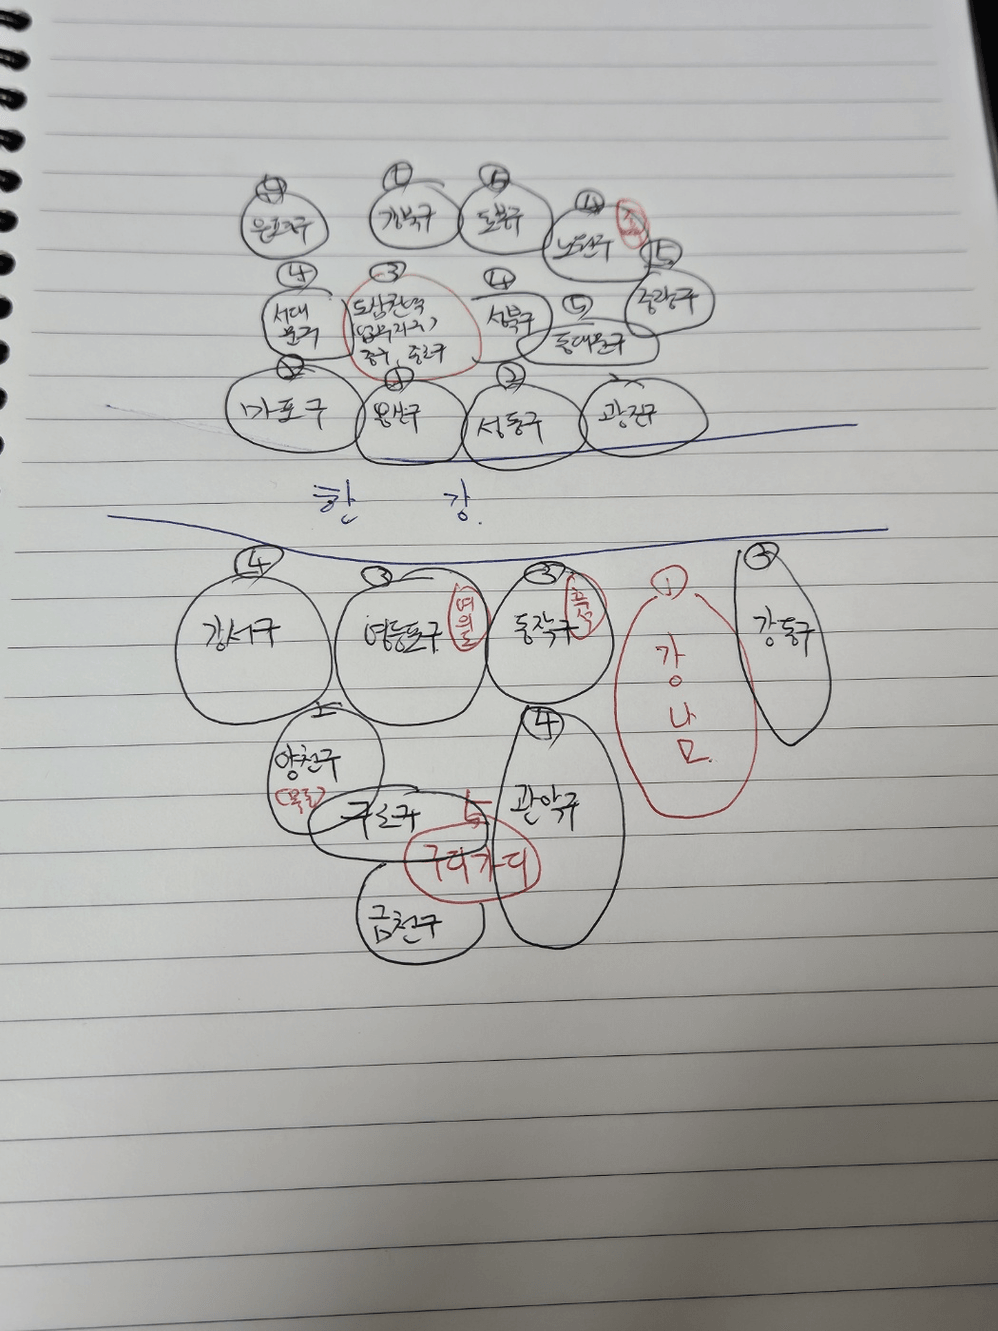 은평구
강북구
도봉구
노원구
④
⑤
중랑구
④
서대
문구
③
도심권역
(업무지구)
중구, 종로구
④
성북구
⑤
동대문구
마포구
①
용산구
②
성동구
광진구
한 강.
④
강서구
③
영등포구
여의도
③
동작구
흑석
①
강
남
③
강동구
양천구
(목동)
구로구
④
관악구
구디가디
금천구